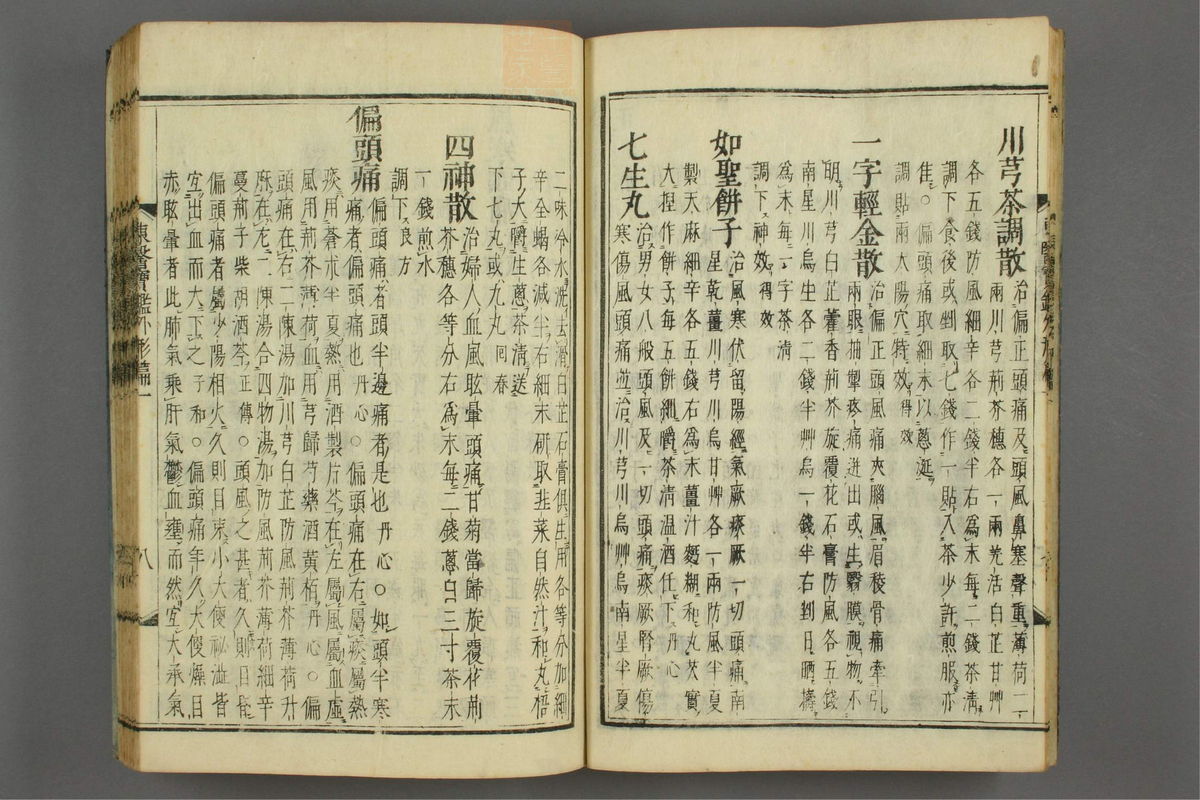 川芎茶調散 治偏正頭痛及頭風鼻塞聲重薄荷二
兩川芎荊芥穗各一兩羌活白芷甘艸
各五錢防風細辛各二錢半右爲末每二錢茶淸
調下食後或剉取七錢作一貼入茶少許煎服亦
佳○偏頭痛取細末以葱涎
調貼兩太陽穴特效得效
一字輕金散 治偏正頭風痛夾腦風眉稜骨痛牽引
兩眼抽掣疼痛迸出或生翳膜視物不
明川芎白芷藿香荊芥旋覆花石膏防風各五錢
南星川烏生各二錢半艸烏一錢半右剉日晒擣
爲末每一字茶淸
調下神效得效
如聖餠子 治風寒伏留陽經氣厥痰厥一切頭痛南
星乾薑川芎川烏甘艸各一兩防風半夏
製天麻細辛各五錢右爲末薑汁麪糊和丸芡實
大捏作餠子每五餠細嚼茶淸溫酒任下丹心
七生丸 治男女八般頭風及一切頭痛痰厥腎厥傷
寒傷風頭痛並治川芎川烏艸烏南星半夏
二味冷水洗去滑白芷石膏俱生用各等分加細
辛全蝎各減半右細末硏取韭菜自然汁和丸梧
子大嚼生葱茶淸送
下七丸或九丸回春
四神散 治婦人血風眩暈頭痛甘菊當歸旋覆花荊
芥穗各等分右爲末每二錢葱白三寸茶末
一錢煎水
調下良方
偏頭痛 偏頭痛者頭半邊痛者是也丹心○如頭半寒
痛者偏頭痛也丹心○偏頭痛在右屬痰屬熱
痰用蒼朮半夏熱用酒製片芩在左屬風屬血虛
風用荊芥薄荷血用芎歸芍藥酒黃栢丹心○偏
頭痛在右二陳湯加川芎白芷防風荊芥薄荷升
麻在左二陳湯合四物湯加防風荊芥薄荷細辛
蔓荊子柴胡酒芩正傳○頭風之甚者久則目昏
偏頭痛者屬少陽相火久則目束小大便祕澁皆
宜出血而大下之子和○偏頭痛年久大便燥目
赤眩暈者此肺氣乘肝氣鬱血壅而然宜大承氣
東醫寶鑑外形篇一
八